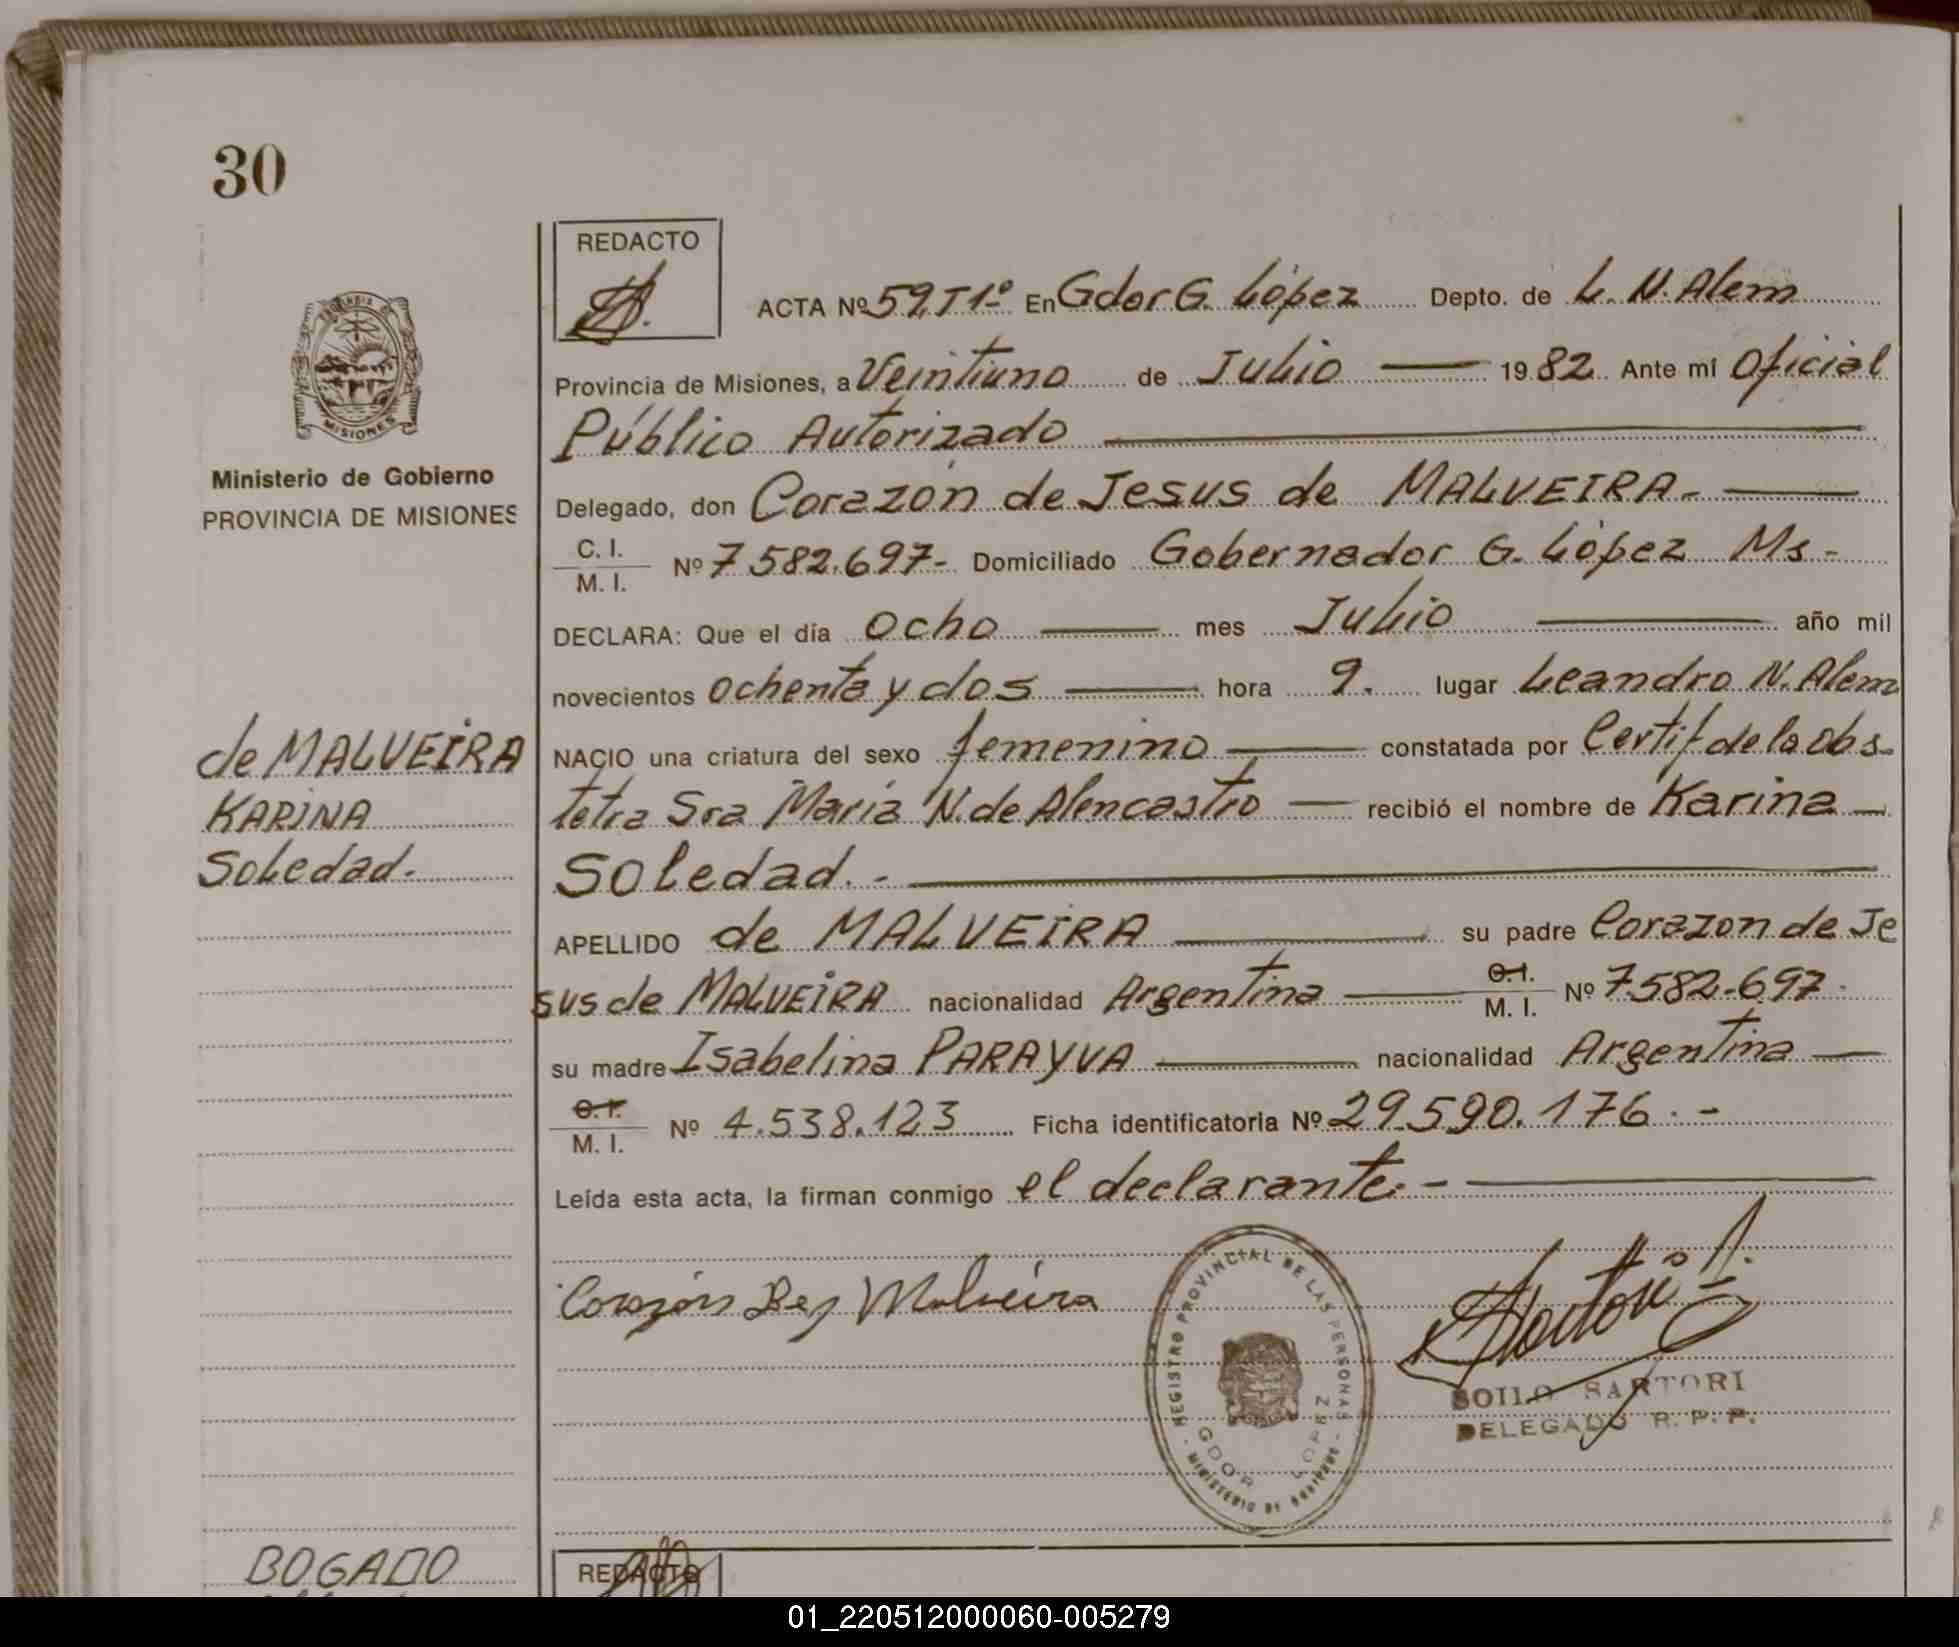 30
REDACTO
ACTA Nº 59, T 1º En Gdor G. López Depto. de L. N. Alem
Provincia de Misiones, a Veintiuno de Julio 1982 Ante mí Oficial
Público Autorizado
Delegado, don Corazón de Jesus de MALVEIRA.
C. I.
M. I.
Nº 7582.697- Domiciliado Gobernador G. López Ms-
DECLARA: Que el día ocho mes Julio año mil
novecientos ochenta y dos hora 9. lugar Leandro N. Alem
NACIO una criatura del sexo femenino constatada por Certif de la obs
tetra Sra María N. de Alencastro recibió el nombre de Karina
Soledad.-
APELLIDO de MALVEIRA su padre Corazon de Je
sus de MALVEIRA nacionalidad Argentina C. I.
M. I. Nº 7.582.697
su madre Isabelina PARAYVA nacionalidad Argentina
C. I.
M. I.
Nº 4.538.123 Ficha identificatoria Nº 29.590.176.-
Leída esta acta, la firman conmigo el declarante.-
PROVINCIA
MISIONES
Ministerio de Gobierno
PROVINCIA DE MISIONES
de MALVEIRA
KARINA
Soledad.
Corazón De J Malveira
REGISTRO PROVINCIAL DE LAS PERSONAS
MINISTERIO DE GOBIERNO
GDOR LOPEZ
Sartori
SOILO SARTORI
DELEGADO R. P. P.
BOGADO
REDACTO
01_220512000060-005279